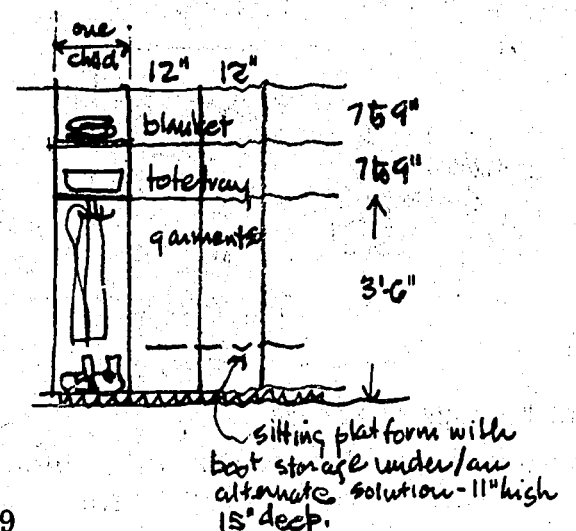 one
child
12" 12"
blanket 7 to 9"
totetray 7 to 9"
garments
3'-6"
sitting platform with
boot storage under/an
alternate solution - 11" high
15" deep.
9